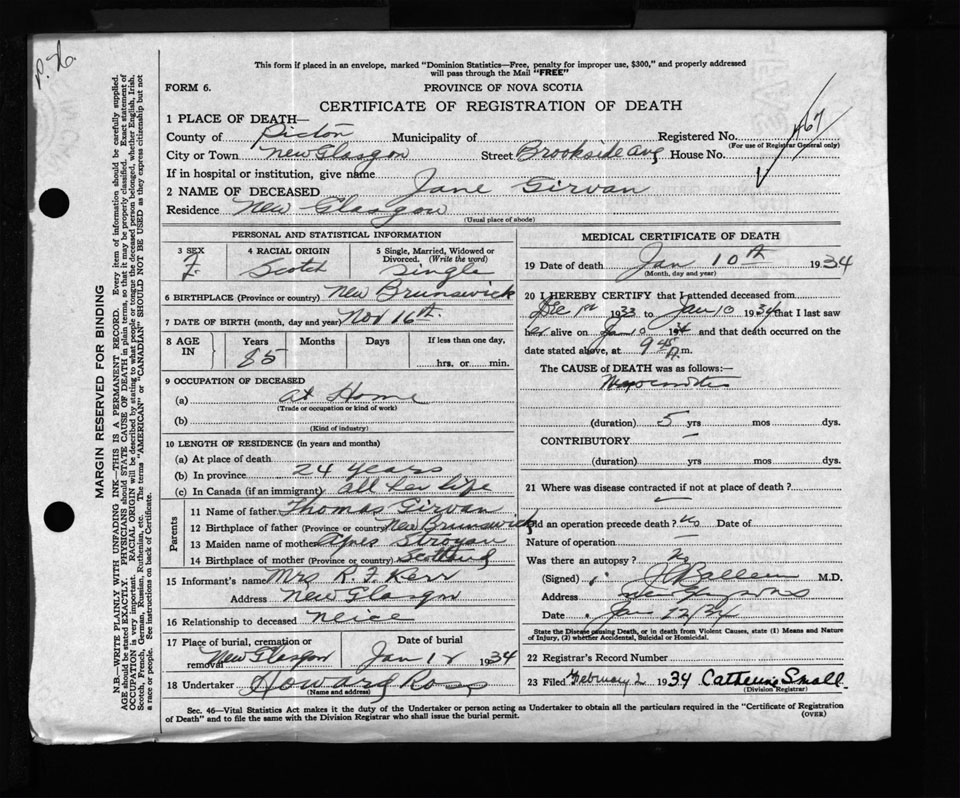 This form if placed in an envelope, marked "Dominion Statistics—Free, penalty for improper use, $300," and properly addressed
will pass through the Mail "FREE"
FORM 6.
PROVINCE OF NOVA SCOTIA
CERTIFICATE OF REGISTRATION OF DEATH
1 PLACE OF DEATH—
County of Pictou Municipality of Registered No.
(For use of Registrar General only)
City or Town New Glasgow Street Brookside Ave House No.
If in hospital or institution, give name
2 NAME OF DECEASED Jane Girvan
Residence New Glasgow
(Usual place of abode)
PERSONAL AND STATISTICAL INFORMATION
3 SEX F. 4 RACIAL ORIGIN Scotch 5 Single, Married, Widowed or Divorced. (Write the word) Single
6 BIRTHPLACE (Province or country) New Brunswick
7 DATE OF BIRTH (month, day and year) Nov 16th.
8 AGE IN Years 85 Months Days If less than one day, hrs. or min.
9 OCCUPATION OF DECEASED
(a) at Home
(Trade or occupation or kind of work)
(b)
(Kind of industry)
10 LENGTH OF RESIDENCE (in years and months)
(a) At place of death
(b) In province 24 years
(c) In Canada (if an immigrant) all her life
Parents
11 Name of father Thomas Girvan
12 Birthplace of father (Province or country) New Brunswick
13 Maiden name of mother Agnes Stroyan
14 Birthplace of mother (Province or country) Scotland
15 Informant's name Mrs R. F. Kerr
Address New Glasgow
16 Relationship to deceased Neice
17 Place of burial, cremation or removal New Glasgow Date of burial Jan 12 1934
18 Undertaker Howard Ross
(Name and address)
MEDICAL CERTIFICATE OF DEATH
19 Date of death Jan 10th 1934
(Month, day and year)
20 I HEREBY CERTIFY that I attended deceased from
Dec 1st 1933 to Jan 10 1934 that I last saw
her alive on Jan 10 1934 and that death occurred on
date stated above, at 9 45 m.
The CAUSE of DEATH was as follows:—
(duration) 5 yrs mos dys.
CONTRIBUTORY —
(duration) yrs. mos. dys.
21 Where was disease contracted if not at place of death?
Did an operation precede death? No Date of
Nature of operation —
Was there an autopsy? No
(Signed) M.D.
Address
Date Jan 12/34
State the Disease causing Death, or in death from Violent Causes, state (1) Means and Nature
of Injury, (2) whether Accidental, Suicidal or Homicidal.
22 Registrar's Record Number
23 Filed February 2 1934 Catherine Small
(Division Registrar)
Sec. 46—Vital Statistics Act makes it the duty of the Undertaker or person acting as Undertaker to obtain all the particulars required in the "Certificate of Registration
of Death" and to file the same with the Division Registrar who shall issue the burial permit.
(OVER)
MARGIN RESERVED FOR BINDING
N.B.—WRITE PLAINLY WITH UNFADING INK—THIS IS A PERMANENT RECORD. Every item of information should be carefully supplied.
AGE should be stated EXACTLY. PHYSICIANS should STATE CAUSE OF DEATH in plain terms, so that it may be properly classified. Exact statement of
OCCUPATION is very important. RACIAL ORIGIN will be described by stating to what people or tongue the deceased person belonged, whether English, Irish,
Scotch, French, German, Russian, Ruthenian, etc. The terms "AMERICAN" or "CANADIAN" SHOULD NOT BE USED as they express citizenship but not
a race or people. See instructions on back of Certificate.